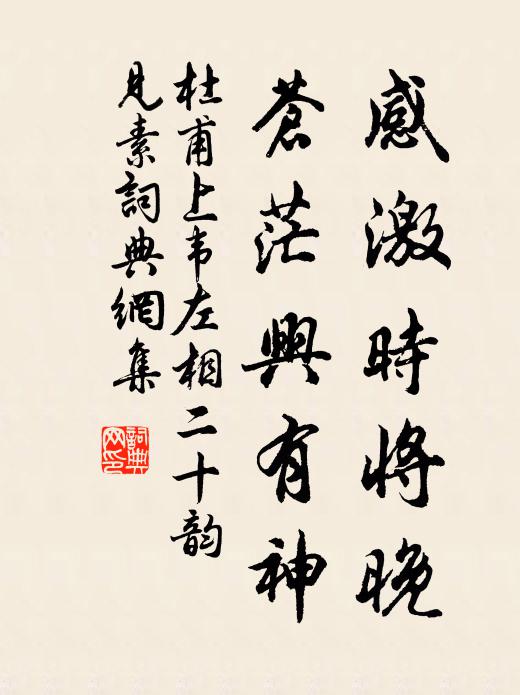 感激時將晚
蒼茫興有神
杜甫上韦左相二十韵
見素詞典網集
詞典网印